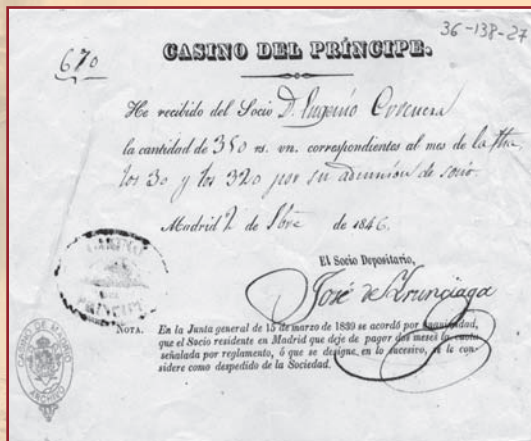 36-138-27
670
CASINO DEL PRÍNCIPE.
He recibido del Socio D. Eugenio
la cantidad de 350 rs. vn. correspondientes al mes de la fha,
los 30 y los 320 por su admision de socio.
Madrid 2 de de 1846.
El Socio Depositario,
José de
NOTA. En la Junta general de 15 de marzo de 1839 se acordó por unanimidad,
que el Socio residente en Madrid que deje de pagar dos meses la cuota
señalada por reglamento, ó que se designe en lo sucesivo, se le con-
sidere como despedido de la Sociedad.
CASINO DE MADRID
ARCHIVO